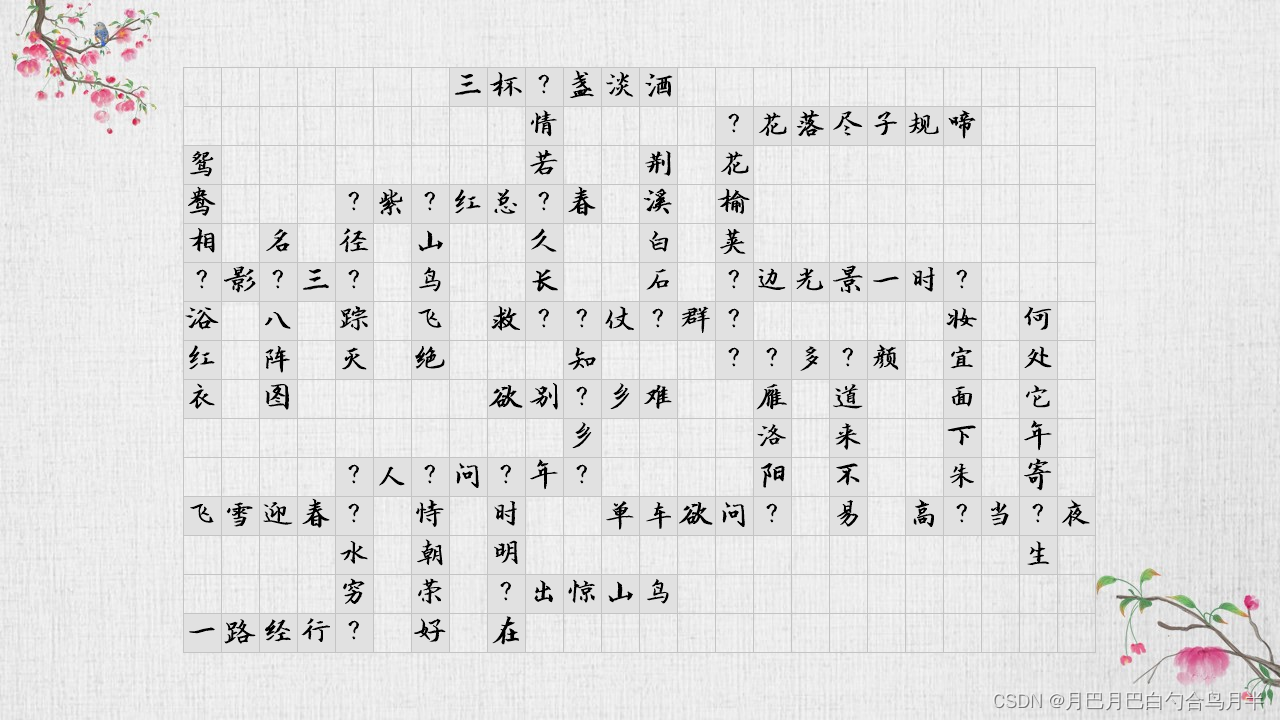 三杯?盏淡酒
情?花落尽子规啼
鸳若荆花
鸯?紫?红总?春溪榆
相名径山久白荚
?影?三?鸟长石?边光景一时?
浴八踪飞救??仗?群?妆何
红阵灭绝知??多?颜宜处
衣图欲别?乡难雁道面它
乡洛来下年
?人?问?年?阳不朱寄
飞雪迎春?恃时单车欲问?易高?当?夜
水朝明生
穷荣?出惊山鸟
一路经行?好在
CSDN @月巴月巴白勺合鸟月半